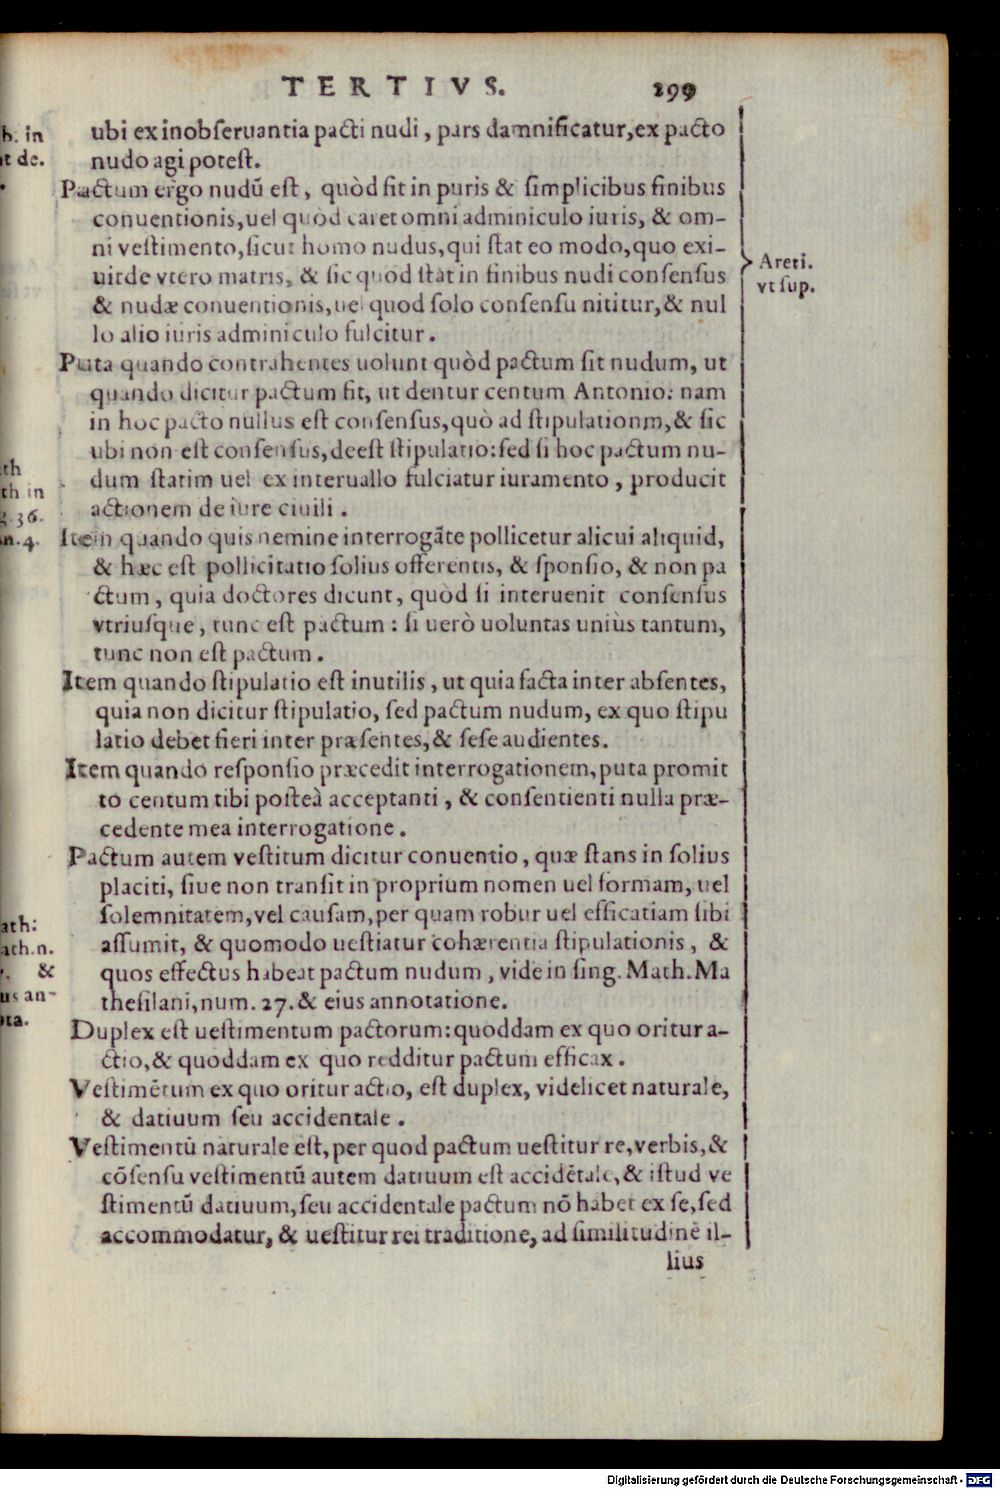 TERTIVS. 299
ubi ex inobseruantia pacti nudi, pars damnificatur, ex pacto
nudo agi potest.
Pactum ergo nudū est, quòd fit in puris & simplicibus finibus
conuentionis, uel quòd caret omni adminiculo iuris, & om-
ni vestimento, sicut homo nudus, qui stat eo modo, quo exi-
uit de vtero matris, & sic quòd stat in finibus nudi consensus
& nudæ conuentionis, uel quod solo consensu nititur, & nul
lo alio iuris adminiculo fulcitur.
Puta quando contrahentes uolunt quòd pactum sit nudum, ut
quando dicitur pactum fit, ut dentur centum Antonio: nam
in hoc pacto nullus est consensus, quò ad stipulationm, & sic
ubi non est consensus, deest stipulatio: sed si hoc pactum nu-
dum statim uel ex interuallo fulciatur iuramento, producit
actionem de iure ciuili.
Item quando quis nemine interrogāte pollicetur alicui aliquid,
& hæc est pollicitatio solius offerentis, & sponsio, & non pa
ctum, quia doctores dicunt, quòd si interuenit consensus
vtriusque, tunc est pactum: si uerò uoluntas uniùs tantum,
tunc non est pactum.
Item quando stipulatio est inutilis, ut quia facta inter absentes,
quia non dicitur stipulatio, sed pactum nudum, ex quo stipu
latio debet fieri inter præsentes, & sese audientes.
Item quando responsio præcedit interrogationem, puta promit
to centum tibi posteà acceptanti, & consentienti nulla præ-
cedente mea interrogatione.
Pactum autem vestitum dicitur conuentio, quæ stans in solius
placiti, siue non transit in proprium nomen uel formam, uel
solemnitatem, vel causam, per quam robur uel efficatiam sibi
assumit, & quomodo uestiatur cohærentia stipulationis, &
quos effectus habeat pactum nudum, vide in sing. Math. Ma
thesilani, num. 27. & eius annotatione.
Duplex est uestimentum pactorum: quoddam ex quo oritur a-
ctio, & quoddam ex quo redditur pactum efficax.
Vestimētum ex quo oritur actio, est duplex, videlicet naturale,
& datiuum seu accidentale.
Vestimentū naturale est, per quod pactum uestitur re, verbis, &
cōsensu vestimentū autem datiuum est accidētale, & istud ve
stimentū datiuum, seu accidentale pactum nō habet ex se, sed
accommodatur, & uestitur rei traditione, ad similitudinē il-
lius
Areti.
vt sup.
h. in
t de.
th
th in
g. 36.
n. 4.
ath:
ath. n.
. &
us an-
ota.
Digitalisierung gefördert durch die Deutsche Forschungsgemeinschaft - DFG